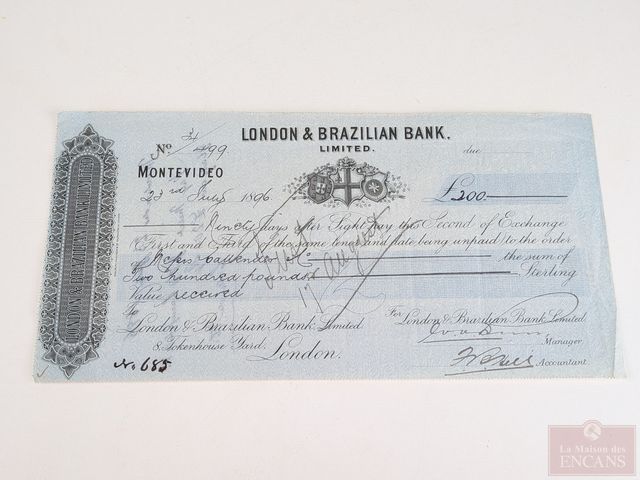 LONDON & BRAZILIAN BANK.
LIMITED.
No 31/499
due
MONTEVIDEO
23rd July 1896
£200
Ninety days after Sight pay this Second of Exchange
(First and Third of the same tenor and date being unpaid to the order
of Callender & Co the sum of
Two hundred pounds Sterling
Value received
To
London & Brazilian Bank Limited
8 Tokenhouse Yard.
London.
For London & Brazilian Bank Limited
Manager
Accountant
No 685
17 August
LONDON & BRAZILIAN BANK LIMITED
La Maison des
ENCANS